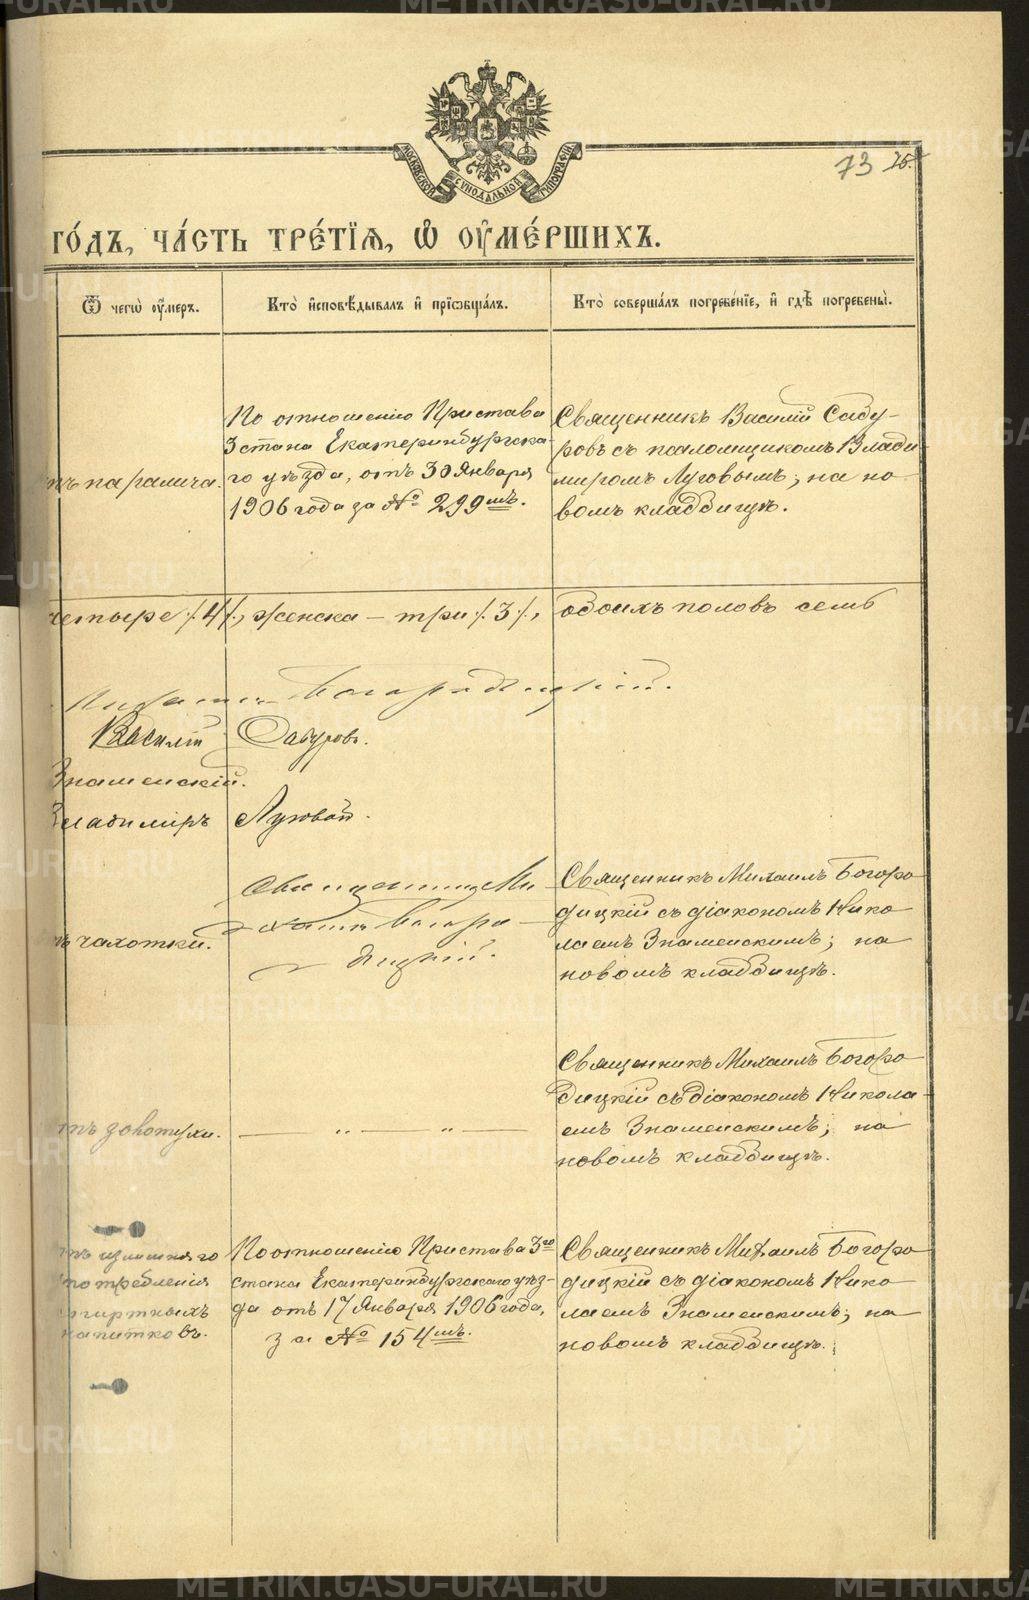 МОСКОВСКОЙ СѴНОДАЛЬНОЙ ТИПОГРАФІИ
73 26.
ГО́ДЪ, ЧА́СТЬ ТРЕ́ТІѦ, Ѽ ОУ҆МЕ́РШИХЪ.
Ѿ чегѡ̀ оу҆́меръ.
Кто̀ и҆сповѣ́дывалъ и҆ прїѡбща́лъ.
Кто̀ соверша́лъ погребе́нїе, и҆ гдѣ̀ погребены̀.
тъ паралича.
По отношенію Пристава
3 стана Екатеринбургска-
го уѣзда, отъ 30 Января
1906 года за № 299мъ.
Священникъ Василій Сабу-
ровъ съ псаломщикомъ Влади
миромъ Луговымъ; на но
вомъ кладбищѣ.
четыре /4/, женска – три /3/, обоихъ половъ семь
Михаилъ Богородицкій.
Василій Сабуровъ.
Знаменскій.
Владиміръ Луговой.
тъ чахотки.
Священникъ Ми-
хаилъ Богоро-
дицкій.
Священникъ Михаилъ Богоро
дицкій съ діакономъ Нико
лаемъ Знаменскимъ; на
новомъ кладбищѣ.
тъ золотухи.
— „ — „ —
Священникъ Михаилъ Богоро
дицкій съ діакономъ Никола-
емъ Знаменскимъ; на
новомъ кладбищѣ.
тъ излишняго
употребленія
спиртныхъ
напитковъ.
По отношенію Пристава 3го
стана Екатеринбургскаго уѣз-
да отъ 17 Января 1906 года,
за № 154мъ.
Священникъ Михаилъ Богоро
дицкій съ діакономъ Нико
лаемъ Знаменскимъ; на
новомъ кладбищѣ.
METRIKI.GASO-URAL.RU